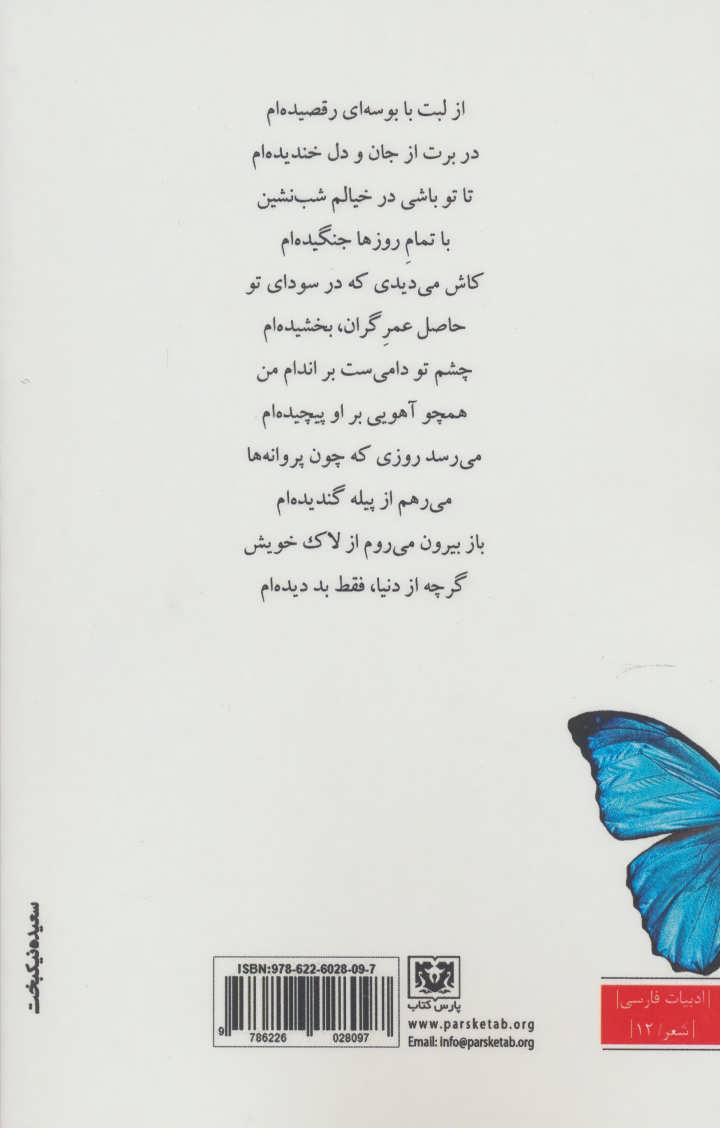 از لبت با بوسه‌ای رقصیده‌ام
در برت از جان و دل خندیده‌ام
تا تو باشی در خیالم شب‌نشین
با تمامِ روزها جنگیده‌ام
کاش می‌دیدی که در سودای تو
حاصل عمرِ گران، بخشیده‌ام
چشم تو دامی‌ست بر اندام من
همچو آهویی بر او پیچیده‌ام
می‌رسد روزی که چون پروانه‌ها
می‌رهم از پیله گندیده‌ام
باز بیرون می‌روم از لاک خویش
گرچه از دنیا، فقط بد دیده‌ام
سعیده نیکبخت
ISBN:978-622-6028-09-7
9 786226 028097
پارس کتاب
www.parsketab.org
Email: info@parsketab.org
|ادبیات فارسی|
|شعر/۱۲|